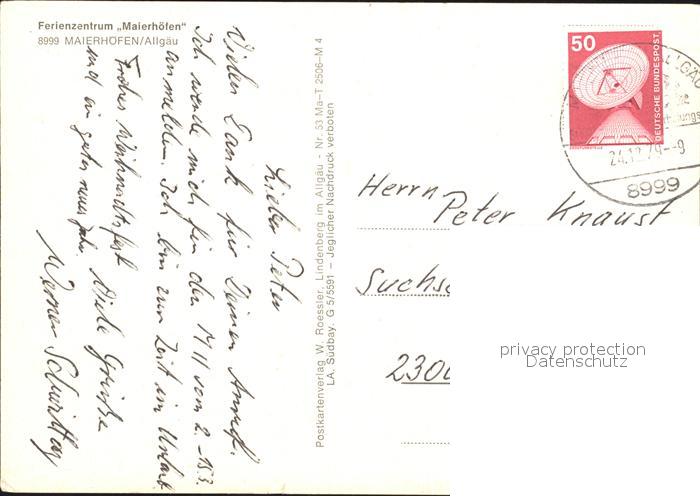 Ferienzentrum „Maierhöfen"
8999 MAIERHÖFEN/Allgäu
Lieber Peter
Vielen Dank für Deinen Anruf.
Ich werde mich für den 14 11 vom 2. - 15.3.
anmelden. Ich bin zur Zeit im Urlaub
Frohes Weihnachtsfest
und ein gutes neues Jahr.
Viele Grüße
Werner
Postkartenverlag W. Roessler, Lindenberg im Allgäu - Nr. 53 Ma-T 2506-M 4
LA. Südbay. G 5/5591 - Jeglicher Nachdruck verboten
50
DEUTSCHE BUNDESPOST
24.12.79--9
8999
Herrn
Peter Knaust
Suchs
2300
privacy protection
Datenschutz